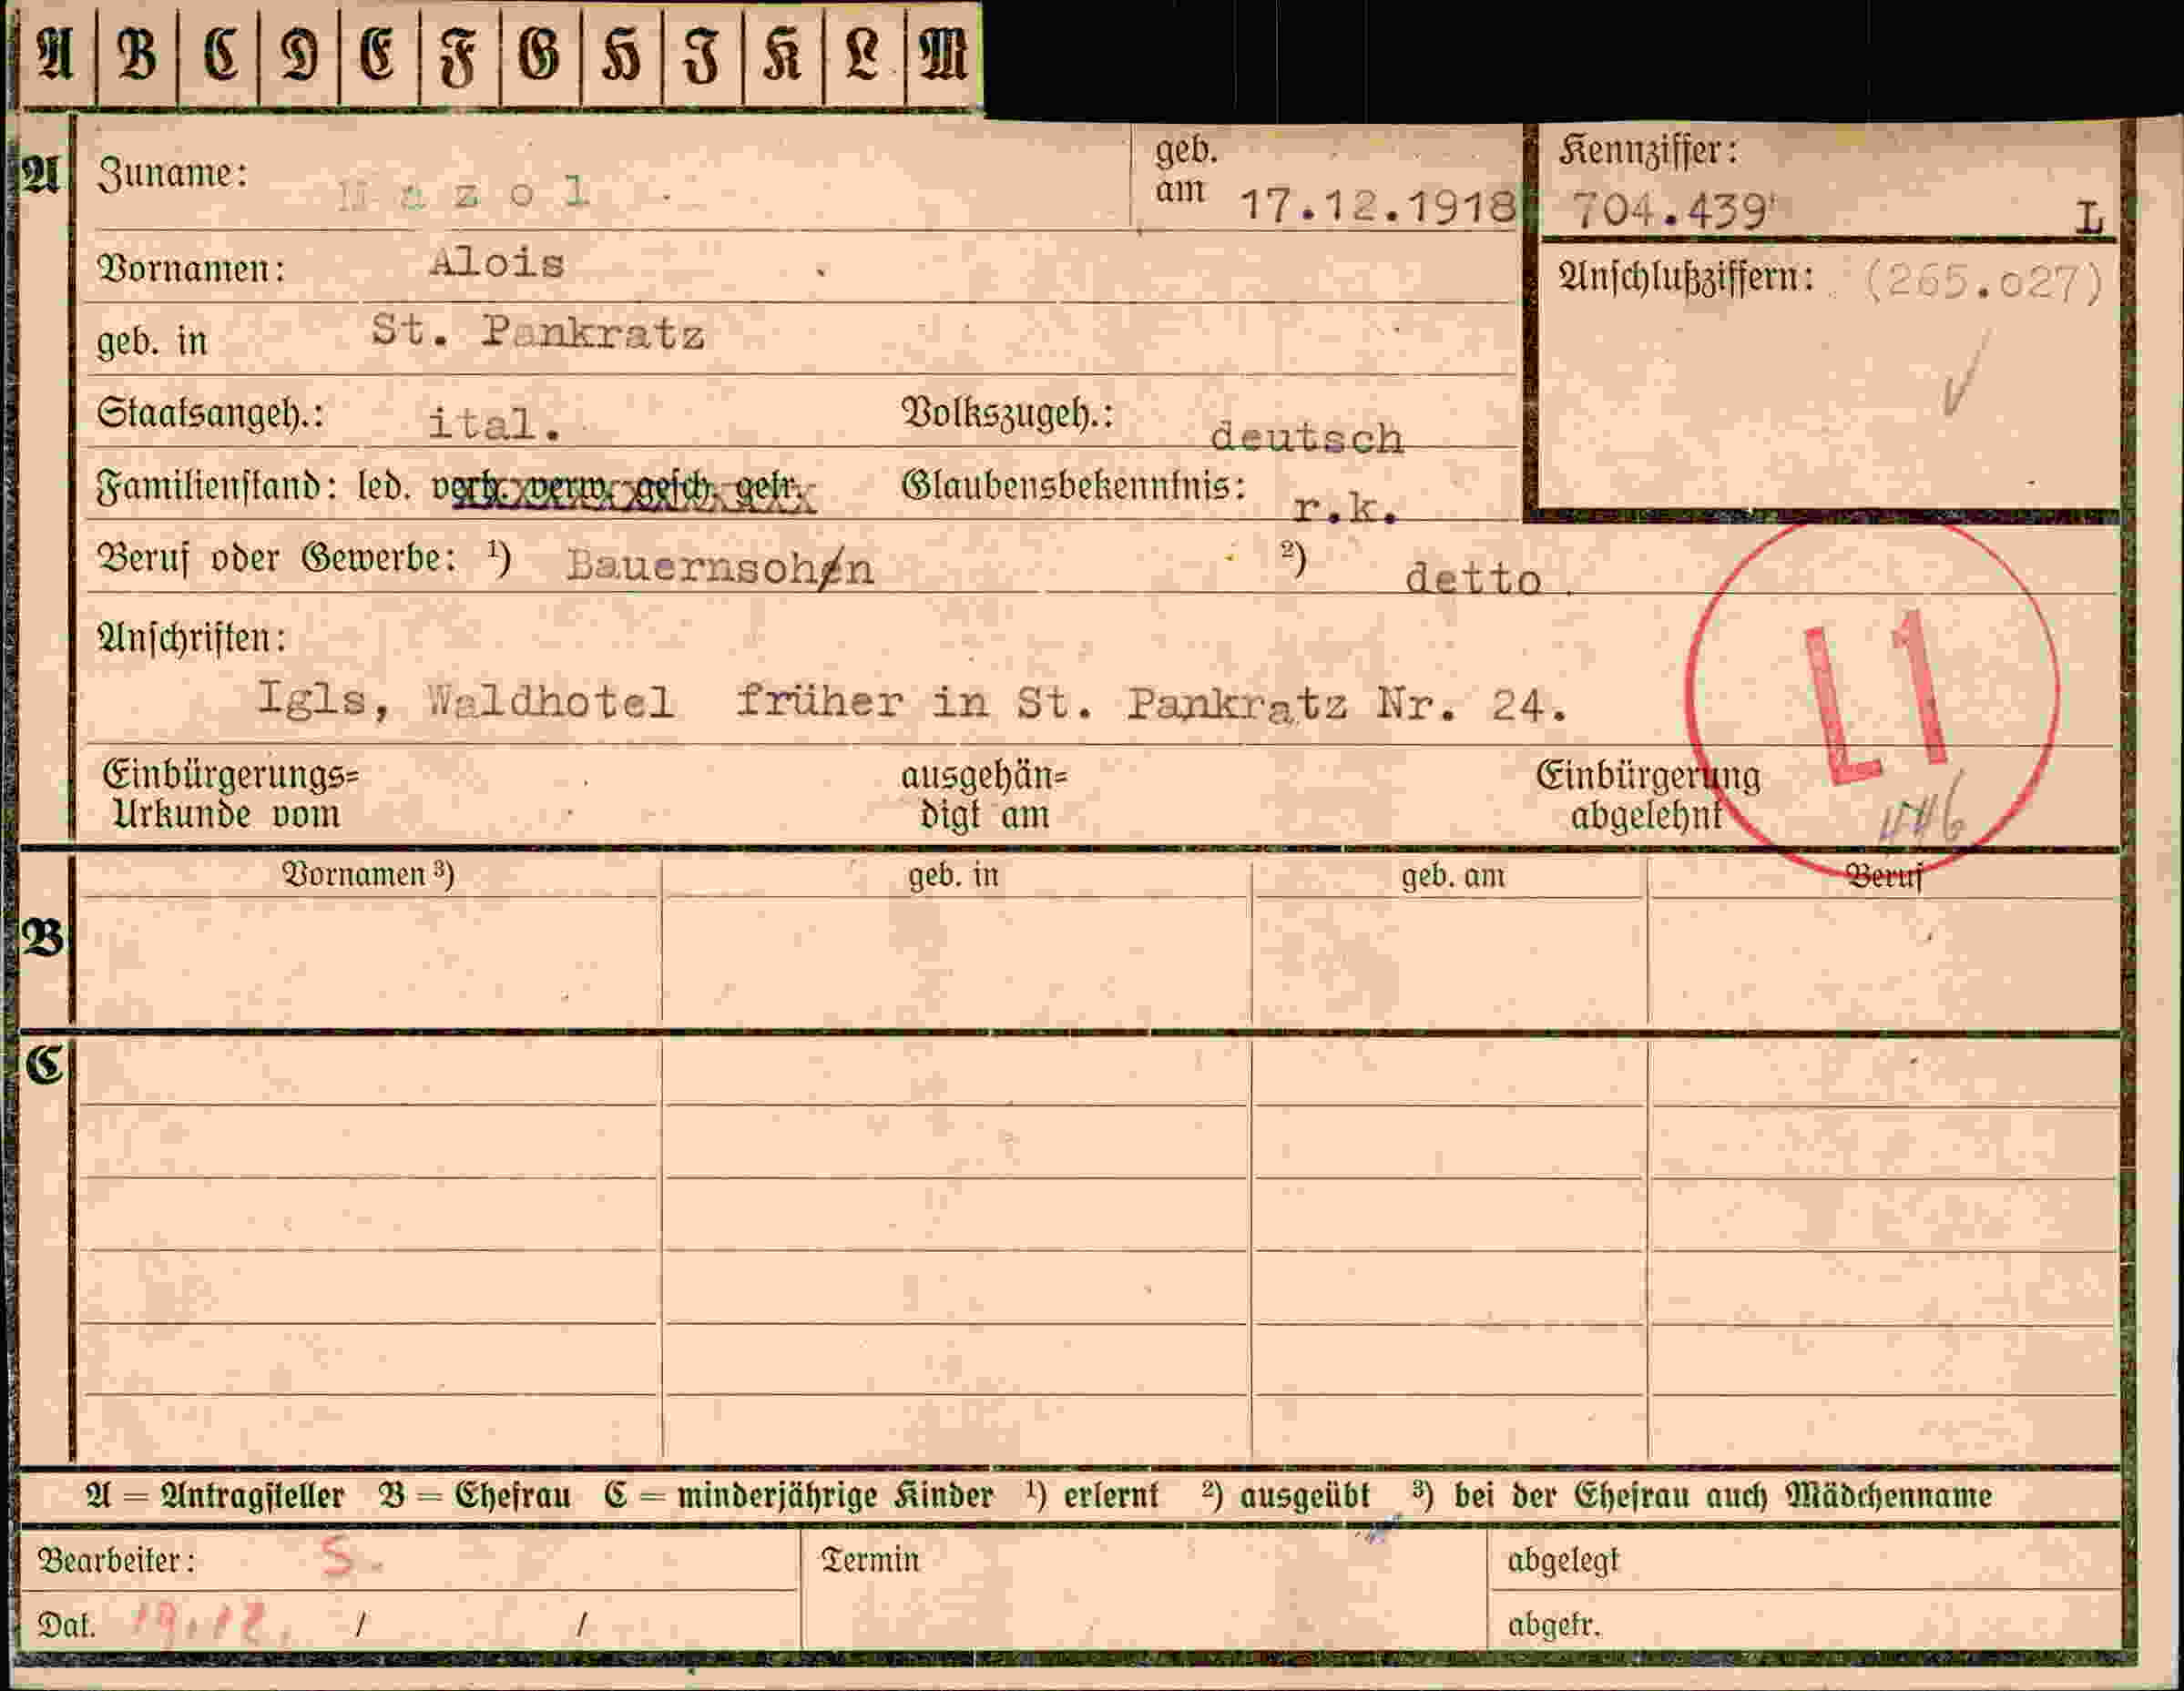 A B C D E F G H I K L M
A Zuname: geb. am 17.12.1918 Kennziffer: 704.439 L
Vornamen: Alois
Anschlußziffern: (265.027)
geb. in St. Pankratz
Staatsangeh.: ital. Volkszugeh.: deutsch
Familienstand: led. verh. verw. gesch. getr. Glaubensbekenntnis: r.k.
Beruf oder Gewerbe: ¹) Bauernsohn ²) detto
Anschriften:
Igls, Waldhotel früher in St. Pankratz Nr. 24.
L1
Einbürgerungs= ausgehän= Einbürgerung
Urkunde vom digt am abgelehnt
Vornamen ³) geb. in geb. am Beruf
B
C
A = Antragsteller B = Ehefrau C = minderjährige Kinder ¹) erlernt ²) ausgeübt ³) bei der Ehefrau auch Mädchenname
Bearbeiter: S. Termin abgelegt
Dat. 19.12. / / abgetr.